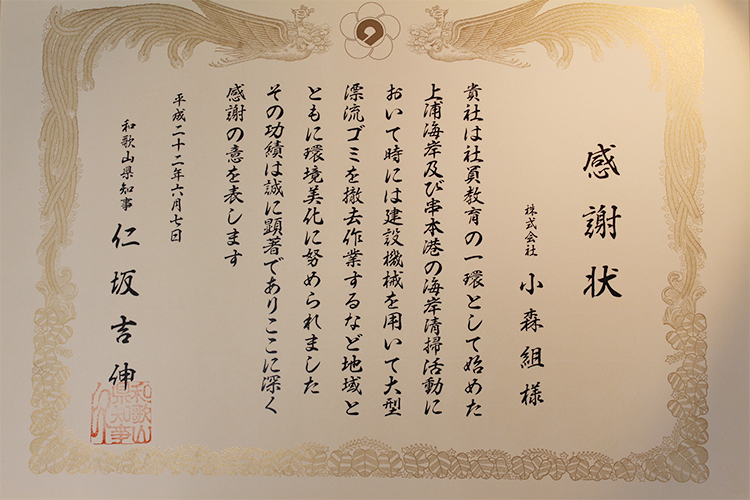 感謝状
株式会社 小森組様
貴社は社員教育の一環として始めた
上浦海岸及び串本港の海岸清掃活動に
おいて時には建設機械を用いて大型
漂流ゴミを撤去作業するなど地域と
ともに環境美化に努められました
その功績は誠に顕著でありここに深く
感謝の意を表します
平成二十二年六月七日
和歌山県知事 仁坂吉伸
和歌山
県知事